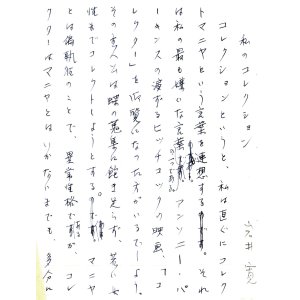 私のコレクション
コレクションというと、私は直ぐにコレク
トマニヤという言葉を連想する。それ
は私の最も嫌いな言葉の一つである。アンソニー・パ
ーキンスの演ずるヒッチコックの映画、「コ
レクター」を御覧になった方がいるでしょう。
その主人公は蝶の蒐集に飽き足らず、若い女
性までコレクトしようとする。マニヤ
とは偏執狂のことで、異常性格であるが、コレ
クターはマニヤとはいかないまでも、多分に